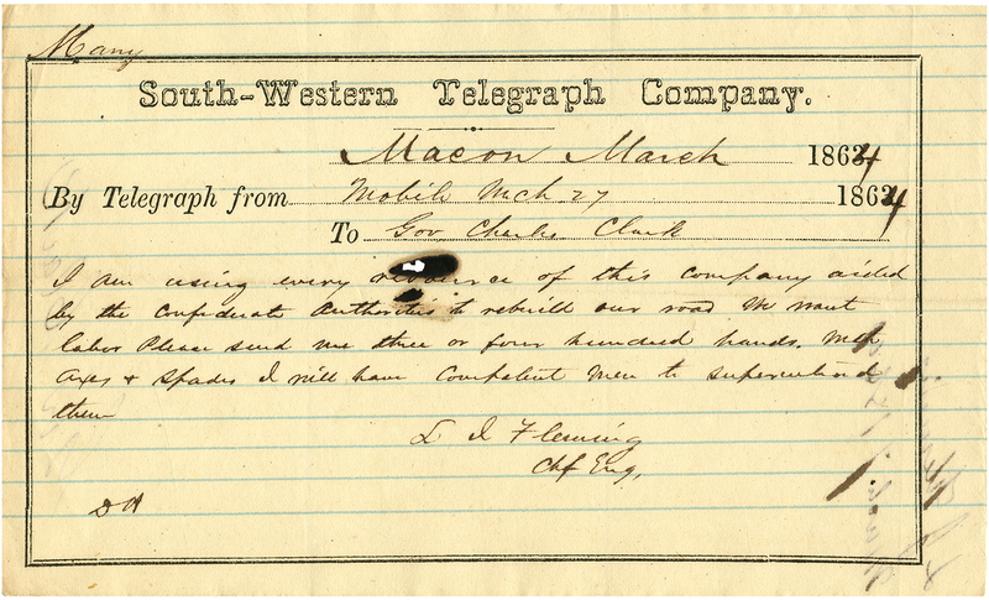 Many
South-Western Telegraph Company.
Macon March 1864
By Telegraph from Mobile Mch 27 1864
To Gov Charles Clark
I am using every resource of this company aided
by the Confederate Authorities to rebuild our road We want
labor Please send me three or four hundred hands. with
axes & spades I will have Competent Men to superintend
them
L I Fleming
Chf Eng,
D H